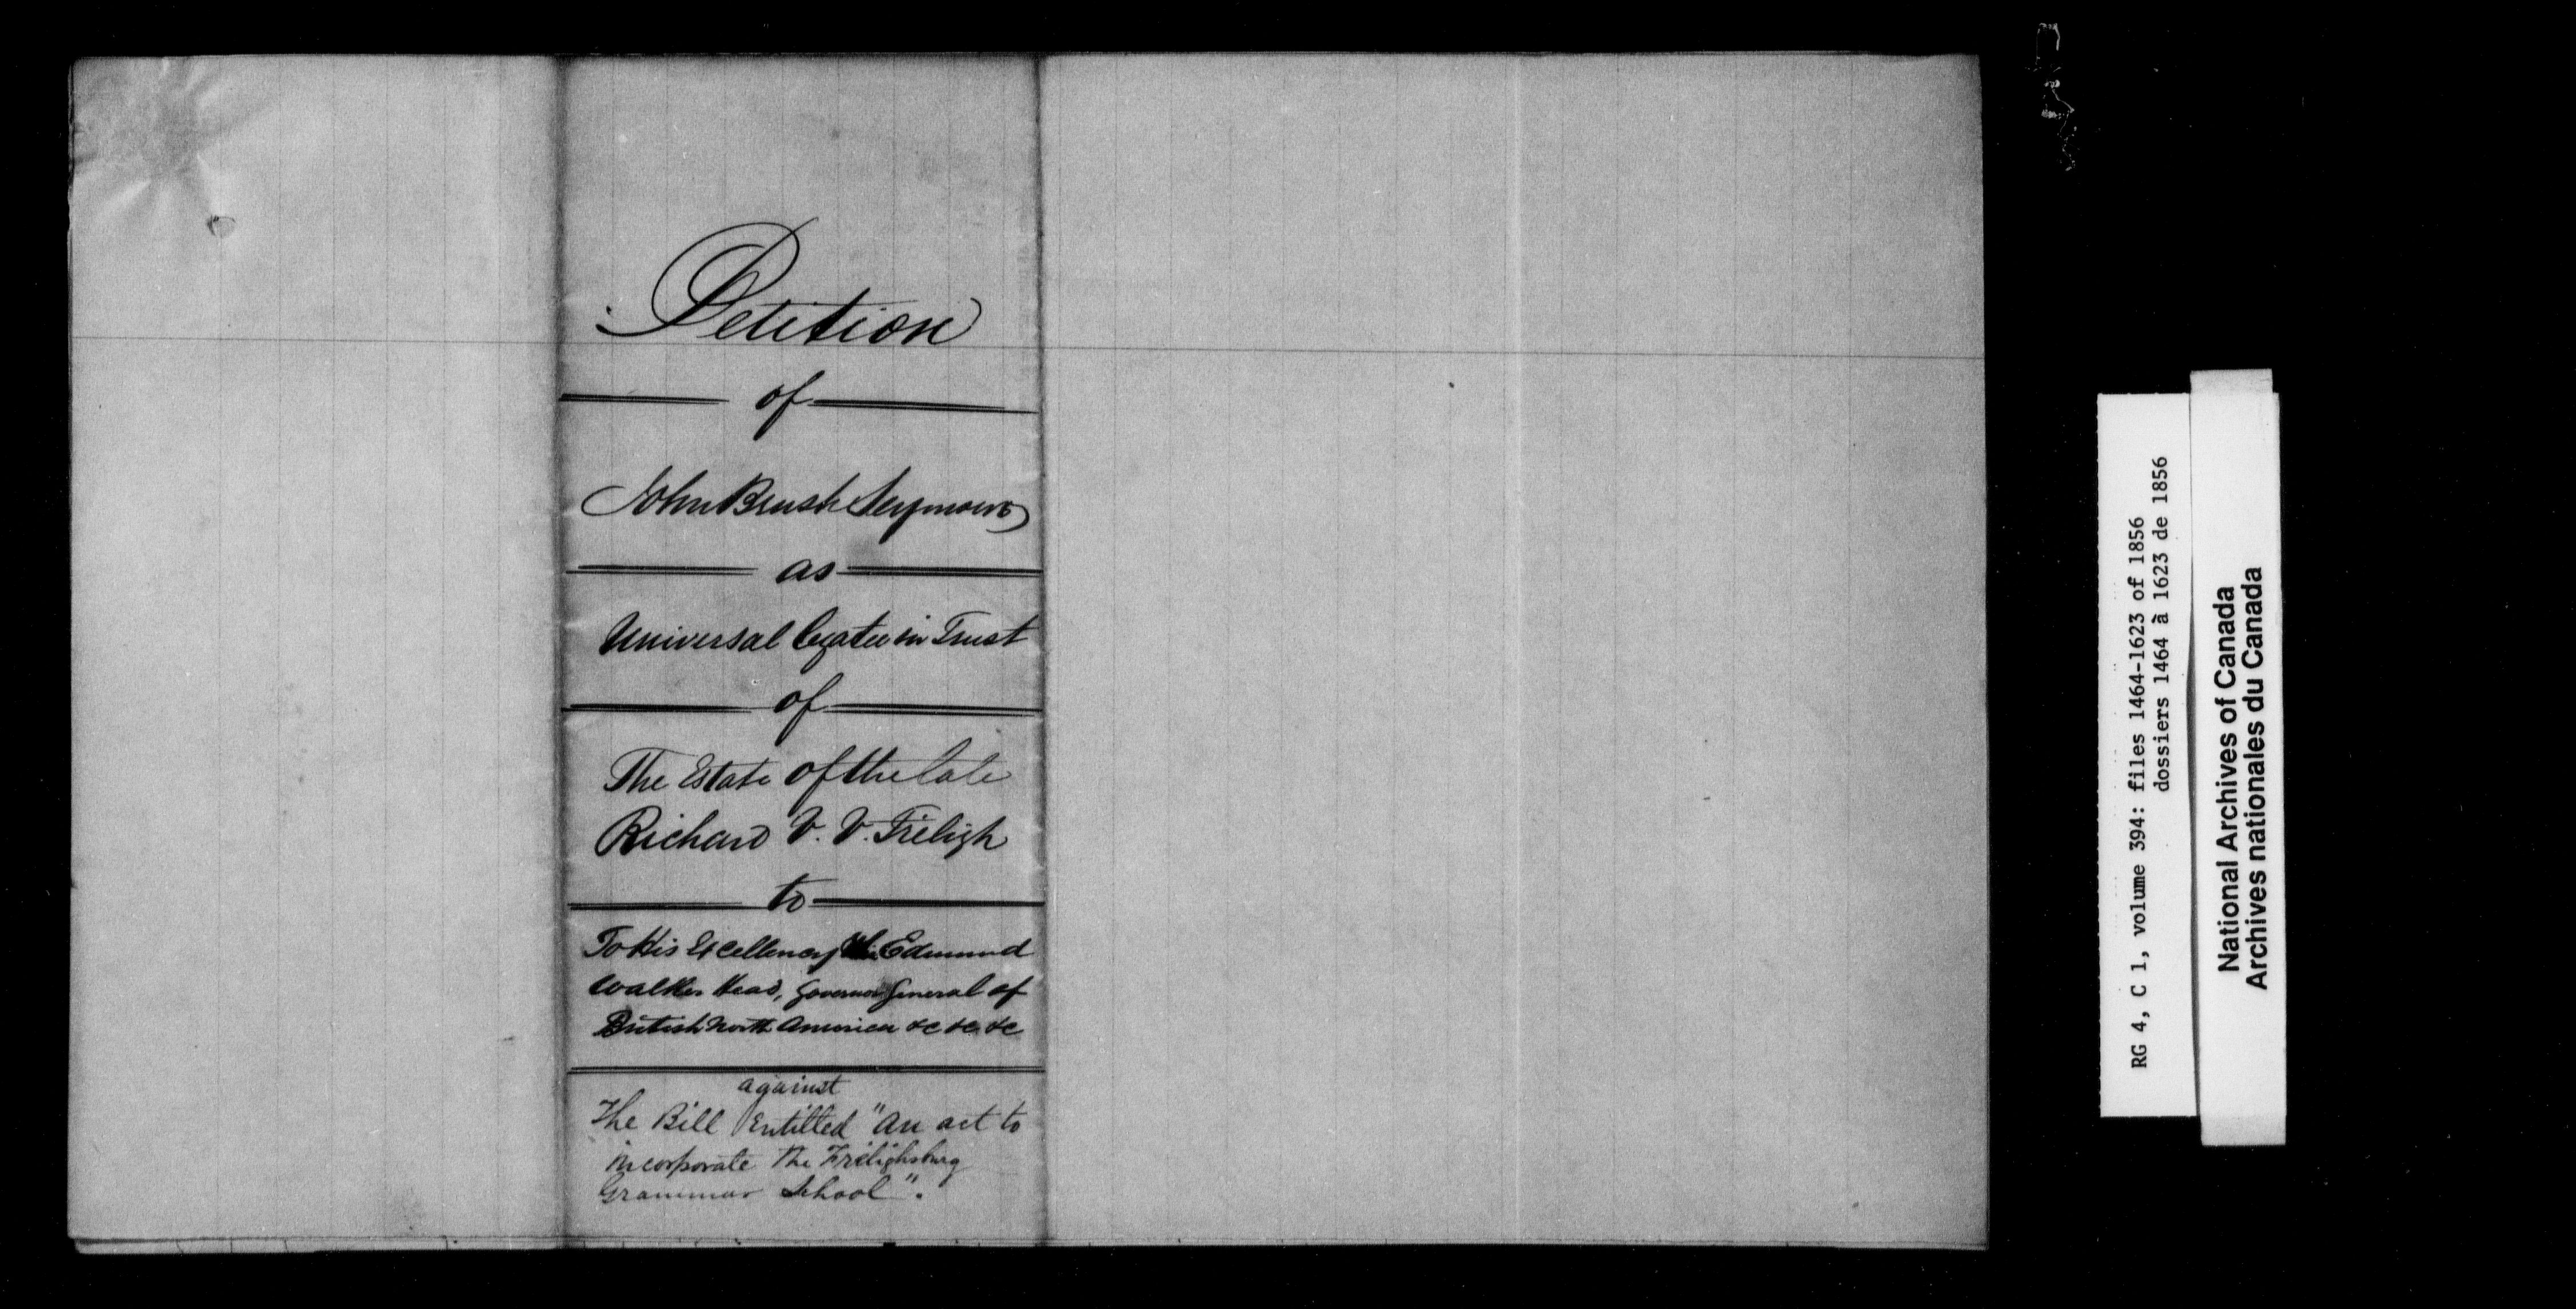 Petition
of
John Brush Seymour
as
Universal legatee in Trust
of
The Estate of the late
Richard V. V. Freligh
to
To His Excellency Edmund
Walker Head, Governor General of
British North America &c &c &c
against
The Bill Entitled "An act to
incorporate the Frelighsburg
Grammar School".
RG 4, C 1, volume 394: files 1464-1623 of 1856
dossiers 1464 à 1623 de 1856
National Archives of Canada
Archives nationales du Canada